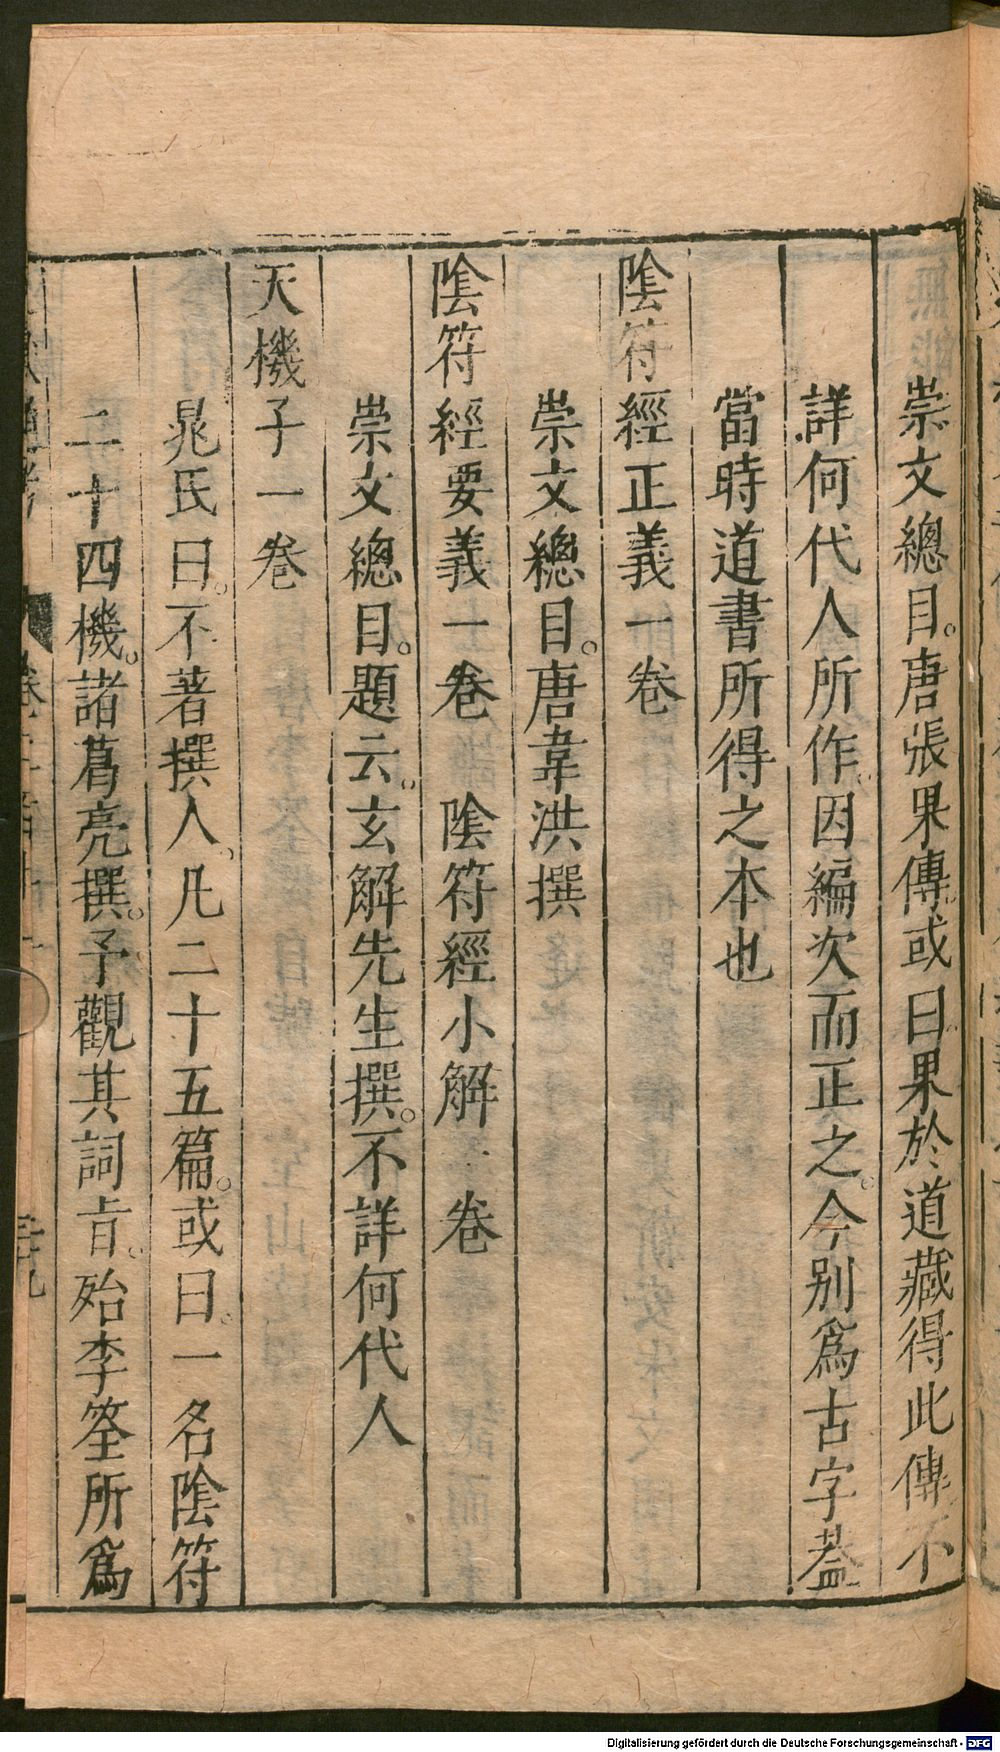 崇文總目。唐張果傳。或曰。果於道藏得此傳不
詳何代人所作。因編次而正之。今別爲古字葢
當時道書所得之本也
陰符經正義一卷
崇文總目。唐韋洪撰
陰符經要義一卷　陰符經小解　卷
崇文總目。題云。玄解先生撰。不詳何代人
天機子一卷
晁氏曰。不著撰人。凡二十五篇。或曰。一名陰符
二十四機。諸葛亮撰。予觀其詞旨。殆李筌所爲
Digitalisierung gefördert durch die Deutsche Forschungsgemeinschaft - DFG